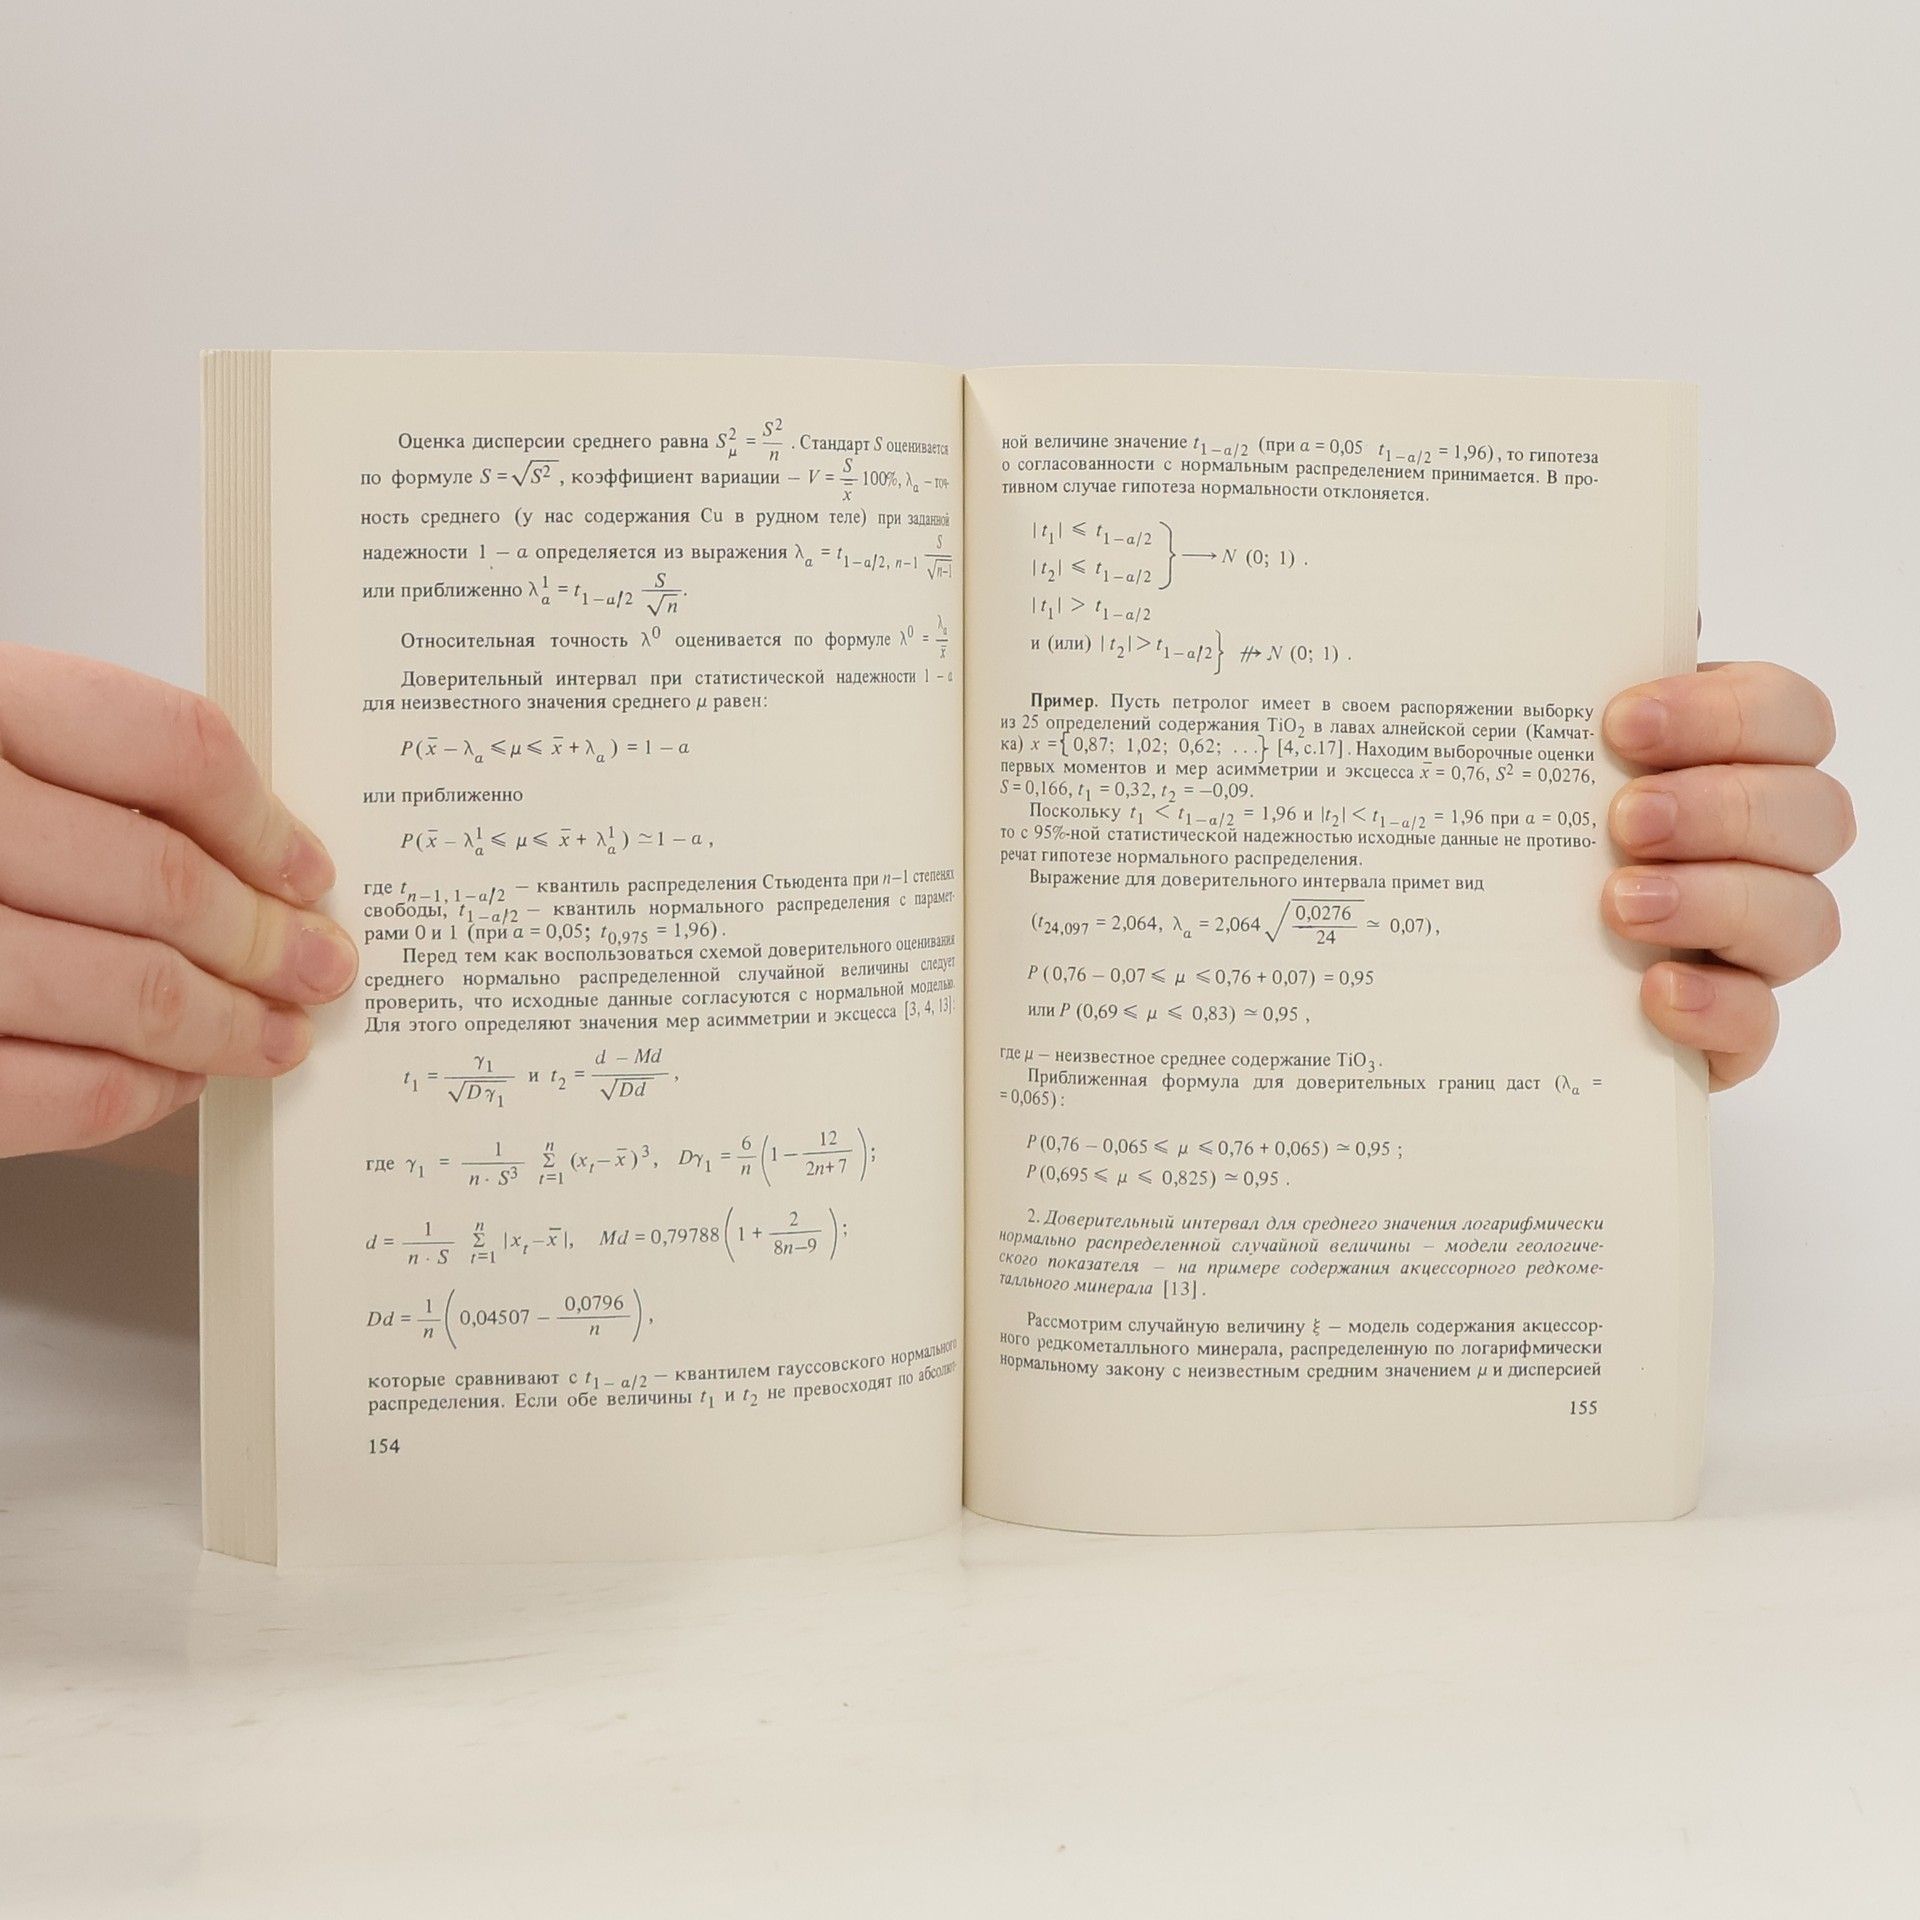 Оценка дисперсии среднего равна S²_μ = S²/n . Стандарт S оценивается
по формуле S = √S² , коэффициент вариации – V = S/x̄ 100%, λ_α – точ-
ность среднего (у нас содержания Cu в рудном теле) при заданной
надежности 1 – α определяется из выражения λ_α = t_{1–α/2, n–1} S/√n–1
или приближенно λ¹_α = t_{1–α/2} S/√n .
Относительная точность λ⁰ оценивается по формуле λ⁰ = λ_α/x̄
Доверительный интервал при статистической надежности 1 – α
для неизвестного значения среднего μ равен:
P(x̄ – λ_α ⩽ μ ⩽ x̄ + λ_α) = 1 – α
или приближенно
P(x̄ – λ¹_α ⩽ μ ⩽ x̄ + λ¹_α) ≃ 1 – α ,
где t_{n–1, 1–α/2} – квантиль распределения Стьюдента при n–1 степенях
свободы, t_{1–α/2} – квантиль нормального распределения с парамет-
рами 0 и 1 (при α = 0,05; t_{0,975} = 1,96) .
Перед тем как воспользоваться схемой доверительного оценивания
среднего нормально распределенной случайной величины следует
проверить, что исходные данные согласуются с нормальной моделью.
Для этого определяют значения мер асимметрии и эксцесса [3, 4, 13]:
t₁ = γ₁/√Dγ₁ и t₂ = (d – Md)/√Dd ,
где γ₁ = 1/(n · S³) Σ_{t=1}^{n} (x_t – x̄)³, Dγ₁ = 6/n (1 – 12/(2n+7));
d = 1/(n · S) Σ_{t=1}^{n} |x_t – x̄|, Md = 0,79788 (1 + 2/(8n–9));
Dd = 1/n (0,04507 – 0,0796/n) ,
которые сравнивают с t_{1 – α/2} – квантилем гауссовского нормального
распределения. Если обе величины t₁ и t₂ не превосходят по абсолют-
154
ной величине значение t_{1–α/2} (при α = 0,05 t_{1–α/2} = 1,96) , то гипотеза
о согласованности с нормальным распределением принимается. В про-
тивном случае гипотеза нормальности отклоняется.
|t₁| ⩽ t_{1–α/2}
|t₂| ⩽ t_{1–α/2} } ⟶ N (0; 1) .
|t₁| > t_{1–α/2}
и (или) |t₂| > t_{1–α/2} } ↛ N (0; 1) .
Пример. Пусть петролог имеет в своем распоряжении выборку
из 25 определений содержания TiO₂ в лавах алнейской серии (Камчат-
ка) x = { 0,87; 1,02; 0,62; . . .} [4, с.17] . Находим выборочные оценки
первых моментов и мер асимметрии и эксцесса x̄ = 0,76, S² = 0,0276,
S = 0,166, t₁ = 0,32, t₂ = –0,09.
Поскольку t₁ < t_{1–α/2} = 1,96 и |t₂| < t_{1–α/2} = 1,96 при α = 0,05,
то с 95%-ной статистической надежностью исходные данные не противо-
речат гипотезе нормального распределения.
Выражение для доверительного интервала примет вид
(t_{24,097} = 2,064, λ_α = 2,064 √(0,0276/24) ≃ 0,07) ,
P (0,76 – 0,07 ⩽ μ ⩽ 0,76 + 0,07) = 0,95
или P (0,69 ⩽ μ ⩽ 0,83) ≃ 0,95 ,
где μ – неизвестное среднее содержание TiO₃ .
Приближенная формула для доверительных границ даст (λ_α =
= 0,065) :
P (0,76 – 0,065 ⩽ μ ⩽ 0,76 + 0,065) ≃ 0,95 ;
P (0,695 ⩽ μ ⩽ 0,825) ≃ 0,95 .
2. Доверительный интервал для среднего значения логарифмически
нормально распределенной случайной величины – модели геологиче-
ского показателя – на примере содержания акцессорного редкоме-
талльного минерала [13] .
Рассмотрим случайную величину ξ – модель содержания акцессор-
ного редкометалльного минерала, распределенную по логарифмически
нормальному закону с неизвестным средним значением μ и дисперсией
155